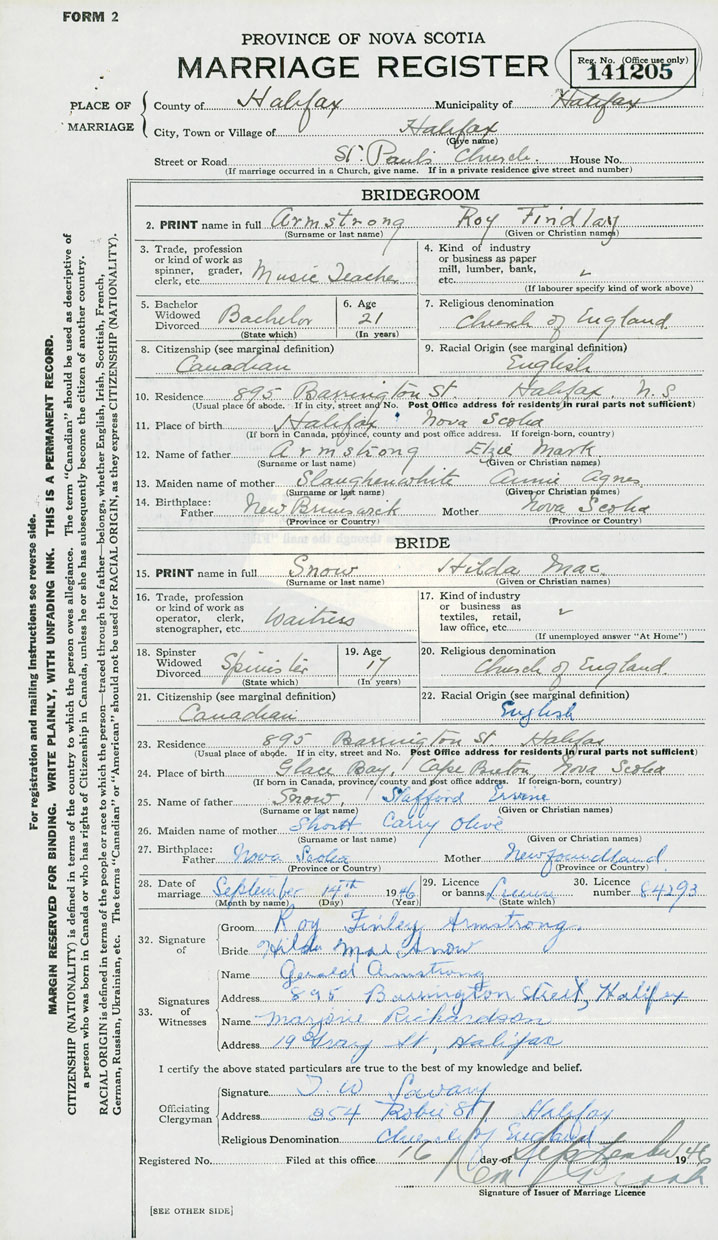 FORM 2
PROVINCE OF NOVA SCOTIA
MARRIAGE REGISTER
Reg. No. (Office use only)
141205
PLACE OF MARRIAGE
County of Halifax Municipality of Halifax
City, Town or Village of Halifax
(Give name)
Street or Road St. Paul's Church. House No.
(If marriage occurred in a Church, give name. If in a private residence give street and number)
BRIDEGROOM
2. PRINT name in full Armstrong Roy Findlay
(Surname or last name) (Given or Christian names)
3. Trade, profession or kind of work as spinner, grader, clerk, etc. Music Teacher
4. Kind of industry or business as paper mill, lumber, bank, etc.
(If labourer specify kind of work above)
5. Bachelor Widowed Divorced Bachelor
(State which)
6. Age 21
(In years)
7. Religious denomination
Church of England
8. Citizenship (see marginal definition)
Canadian
9. Racial Origin (see marginal definition)
English
10. Residence 895 Barrington St. Halifax, N.S.
(Usual place of abode. If in city, street and No. Post Office address for residents in rural parts not sufficient)
11. Place of birth Halifax Nova Scotia
(If born in Canada, province, county and post office address. If foreign-born, country)
12. Name of father Armstrong Elzie Mark
(Surname or last name) (Given or Christian names)
13. Maiden name of mother Slaughenwhite Annie Agnes
(Surname or last name) (Given or Christian names)
14. Birthplace: Father New Brunswick Mother Nova Scotia
(Province or Country) (Province or Country)
BRIDE
15. PRINT name in full Snow Hilda Mae
(Surname or last name) (Given or Christian names)
16. Trade, profession or kind of work as operator, clerk, stenographer, etc. Waitress
17. Kind of industry or business as textiles, retail, law office, etc.
(If unemployed answer "At Home")
18. Spinster Widowed Divorced Spinister
(State which)
19. Age 17
(In years)
20. Religious denomination
Church of England
21. Citizenship (see marginal definition)
Canadian
22. Racial Origin (see marginal definition)
English
23. Residence 895 Barrington St. Halifax
(Usual place of abode. If in city, street and No. Post Office address for residents in rural parts not sufficient)
24. Place of birth Glace Bay, Cape Breton, Nova Scotia
(If born in Canada, province, county and post office address. If foreign-born, country)
25. Name of father Snow, Stafford Ervine
(Surname or last name) (Given or Christian names)
26. Maiden name of mother Shortt Carry Olive
(Surname or last name) (Given or Christian names)
27. Birthplace: Father Nova Scotia Mother Newfoundland
(Province or Country) (Province or Country)
28. Date of marriage September 14th 1946
(Month by name) (Day) (Year)
29. Licence or banns License
(State which)
30. Licence number 84293
32. Signature of
Groom Roy Finley Armstrong.
Bride Hilda Mae Snow
33. Signatures of Witnesses
Name Gerald Armstrong
Address 895 Barrington Street, Halifax
Name Marjorie Richardson
Address 19 Gray St, Halifax
I certify the above stated particulars are true to the best of my knowledge and belief.
Officiating Clergyman
Signature T. W. Savary
Address 254 Robie St. Halifax
Religious Denomination Church of England
Registered No. Filed at this office 16 day of September 1946
Signature of Issuer of Marriage Licence
[SEE OTHER SIDE]
For registration and mailing instructions see reverse side.
MARGIN RESERVED FOR BINDING. WRITE PLAINLY, WITH UNFADING INK. THIS IS A PERMANENT RECORD.
CITIZENSHIP (NATIONALITY) is defined in terms of the country to which the person owes allegiance. The term "Canadian" should be used as descriptive of
a person who was born in Canada or who has rights of Citizenship in Canada, unless he or she has subsequently become the citizen of another country.
RACIAL ORIGIN is defined in terms of the people or race to which the person—traced through the father—belongs, whether English, Irish, Scottish, French,
German, Russian, Ukrainian, etc. The terms "Canadian" or "American" should not be used for RACIAL ORIGIN, as they express CITIZENSHIP (NATIONALITY).